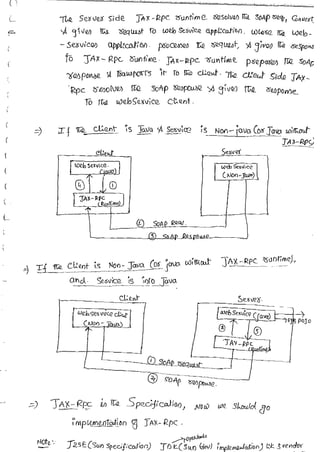 The Server side JAX-RPC runtime resolves the soap req, convert
& gives the request to web service application. Where the web-
- Services application. processes the request, & gives the response
to JAX-RPC runtime. JAX-RPC runtime prepares the soap
response & transports it to the client. The Client side JAX-
Rpc resolves the soap response & gives the response
to the webservice client.
=> If the client is Java & Service is Non-java (or Java without
JAX-RPC)
client
Server
Web Service
(java)
Web service
(Non-Java)
④ ①
JAX-RPC
(Runtime)
② SOAP Req
③ SOAP Response
=> If the Client is Non-Java (or java without JAX-RPC runtime),
and Service is into Java
Client
Server
web service client
(Non-Java)
web service (java)
③
JAX-RPC
(runtime)
① SOAP request
SOAP response
=> JAX-RPC is the Specification, now we should go
implementation of JAX-RPC.
Note: J2SE (Sun Specification) JDK (Sun implementation)